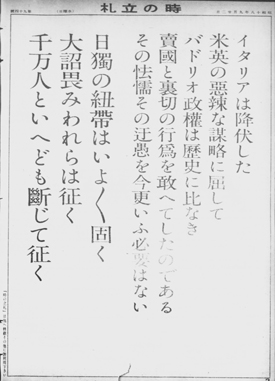 時の立札
イタリアは降伏した
米英の惡辣な謀略に屈して
バドリオ政權は歴史に比なき
賣國と裏切の行爲を敢へてしたのである
その怯懦その迂愚を今更いふ必要はない
日獨の紐帶はいよ〱固く
大詔畏みわれらは征く
千万人といへども斷じて征く